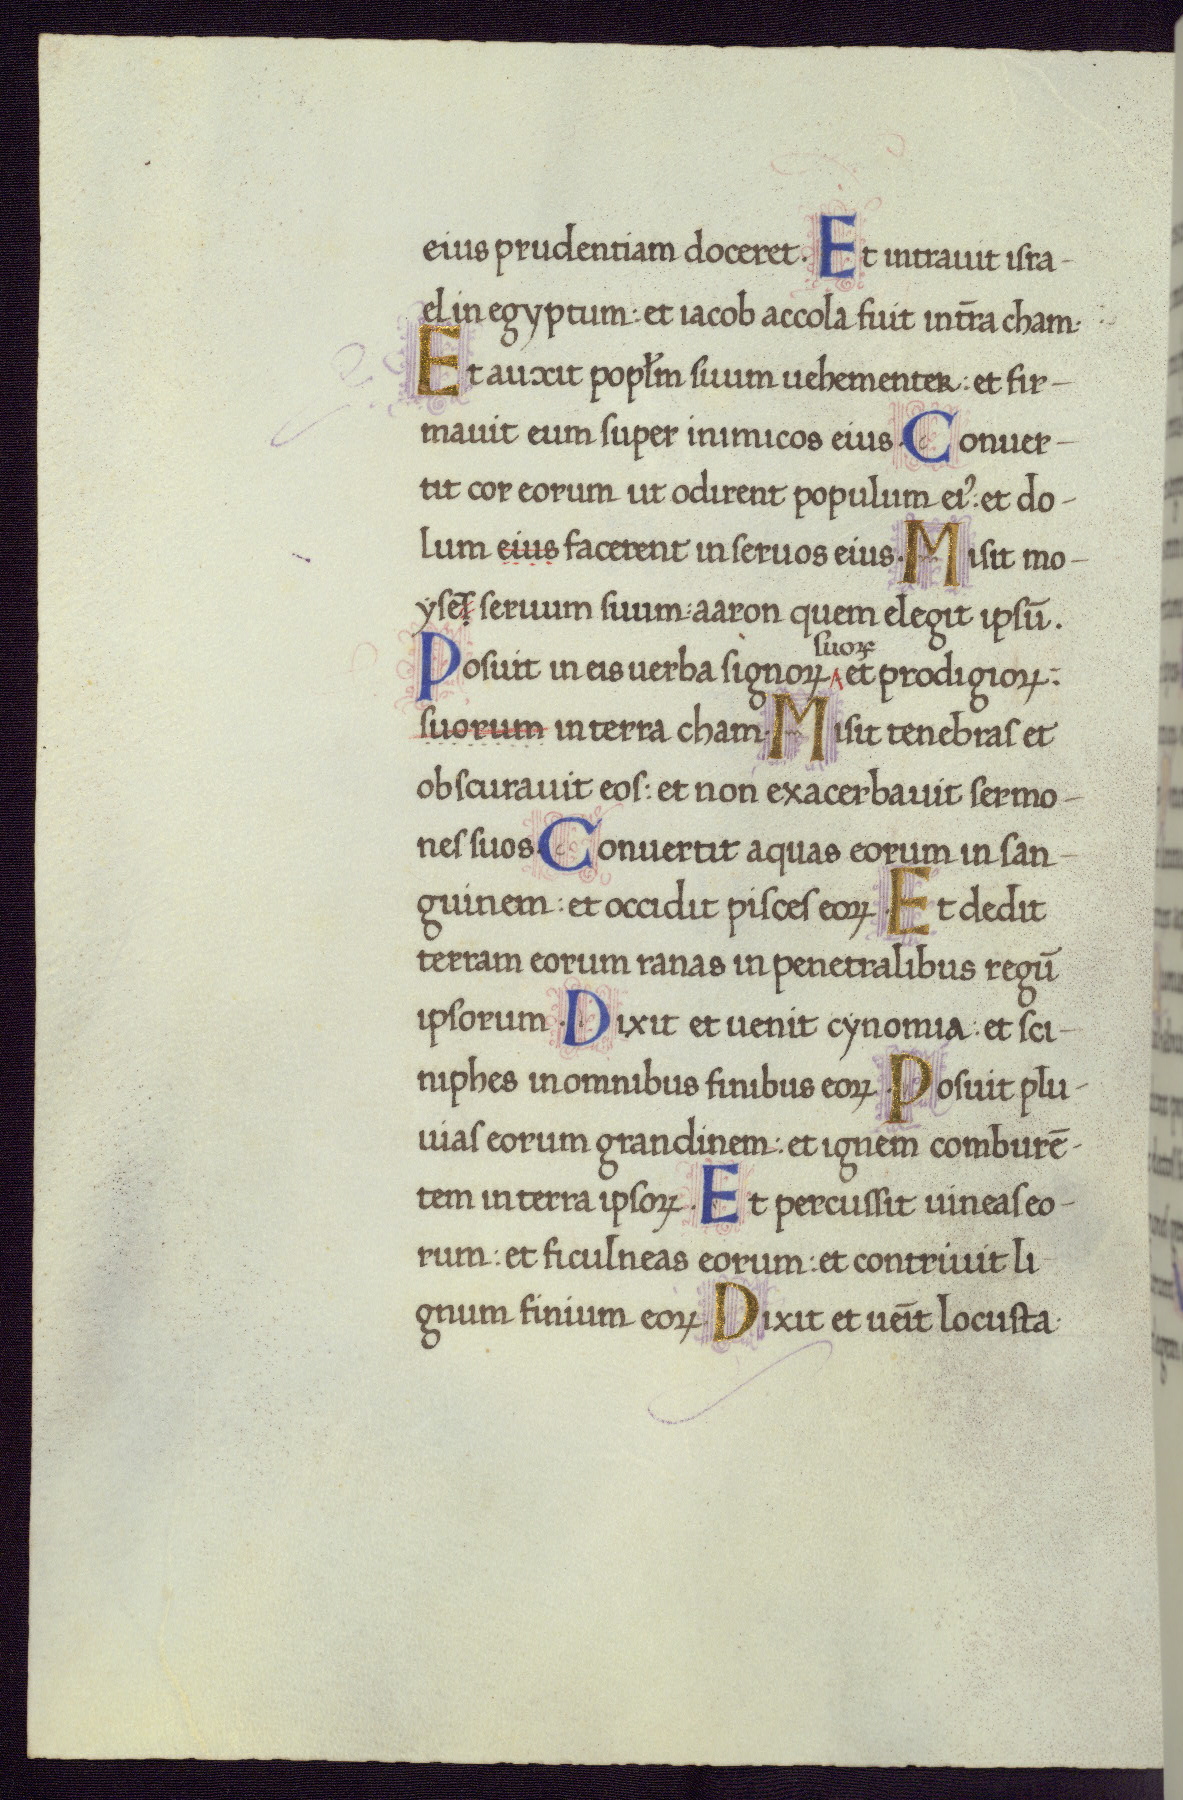 eius prudentiam doceret. Et intrauit isra-
el in egyptum: et iacob accola fuit in tr̄a cham.
Et auxit popl̄m suum uehementer: et fir-
mauit eum super inimicos eius. Conuer-
tit cor eorum ut odirent populum ei⁹: et do-
lum eius facerent in seruos eius. Misit mo-
yses seruum suum: aaron quem elegit ipsū.
suoꝝ
Posuit in eis uerba signoꝝ et prodigioꝝ:
suorum in terra cham. Misit tenebras et
obscurauit eos: et non exacerbauit sermo-
nes suos. Conuertit aquas eorum in san-
guinem: et occidit pisces eoꝝ. Et dedit
terram eorum ranas in penetralibus regū
ipsorum. Dixit et uenit cynomia: et sci-
niphes in omnibus finibus eoꝝ. Posuit plu-
uias eorum grandinem: et ignem comburē-
tem in terra ipsoꝝ. Et percussit uineas eo-
rum: et ficulneas eorum: et contriuit li
gnum finium eoꝝ. Dixit et ueīt locusta